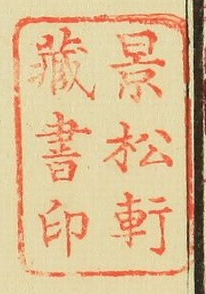 景松軒
藏書印